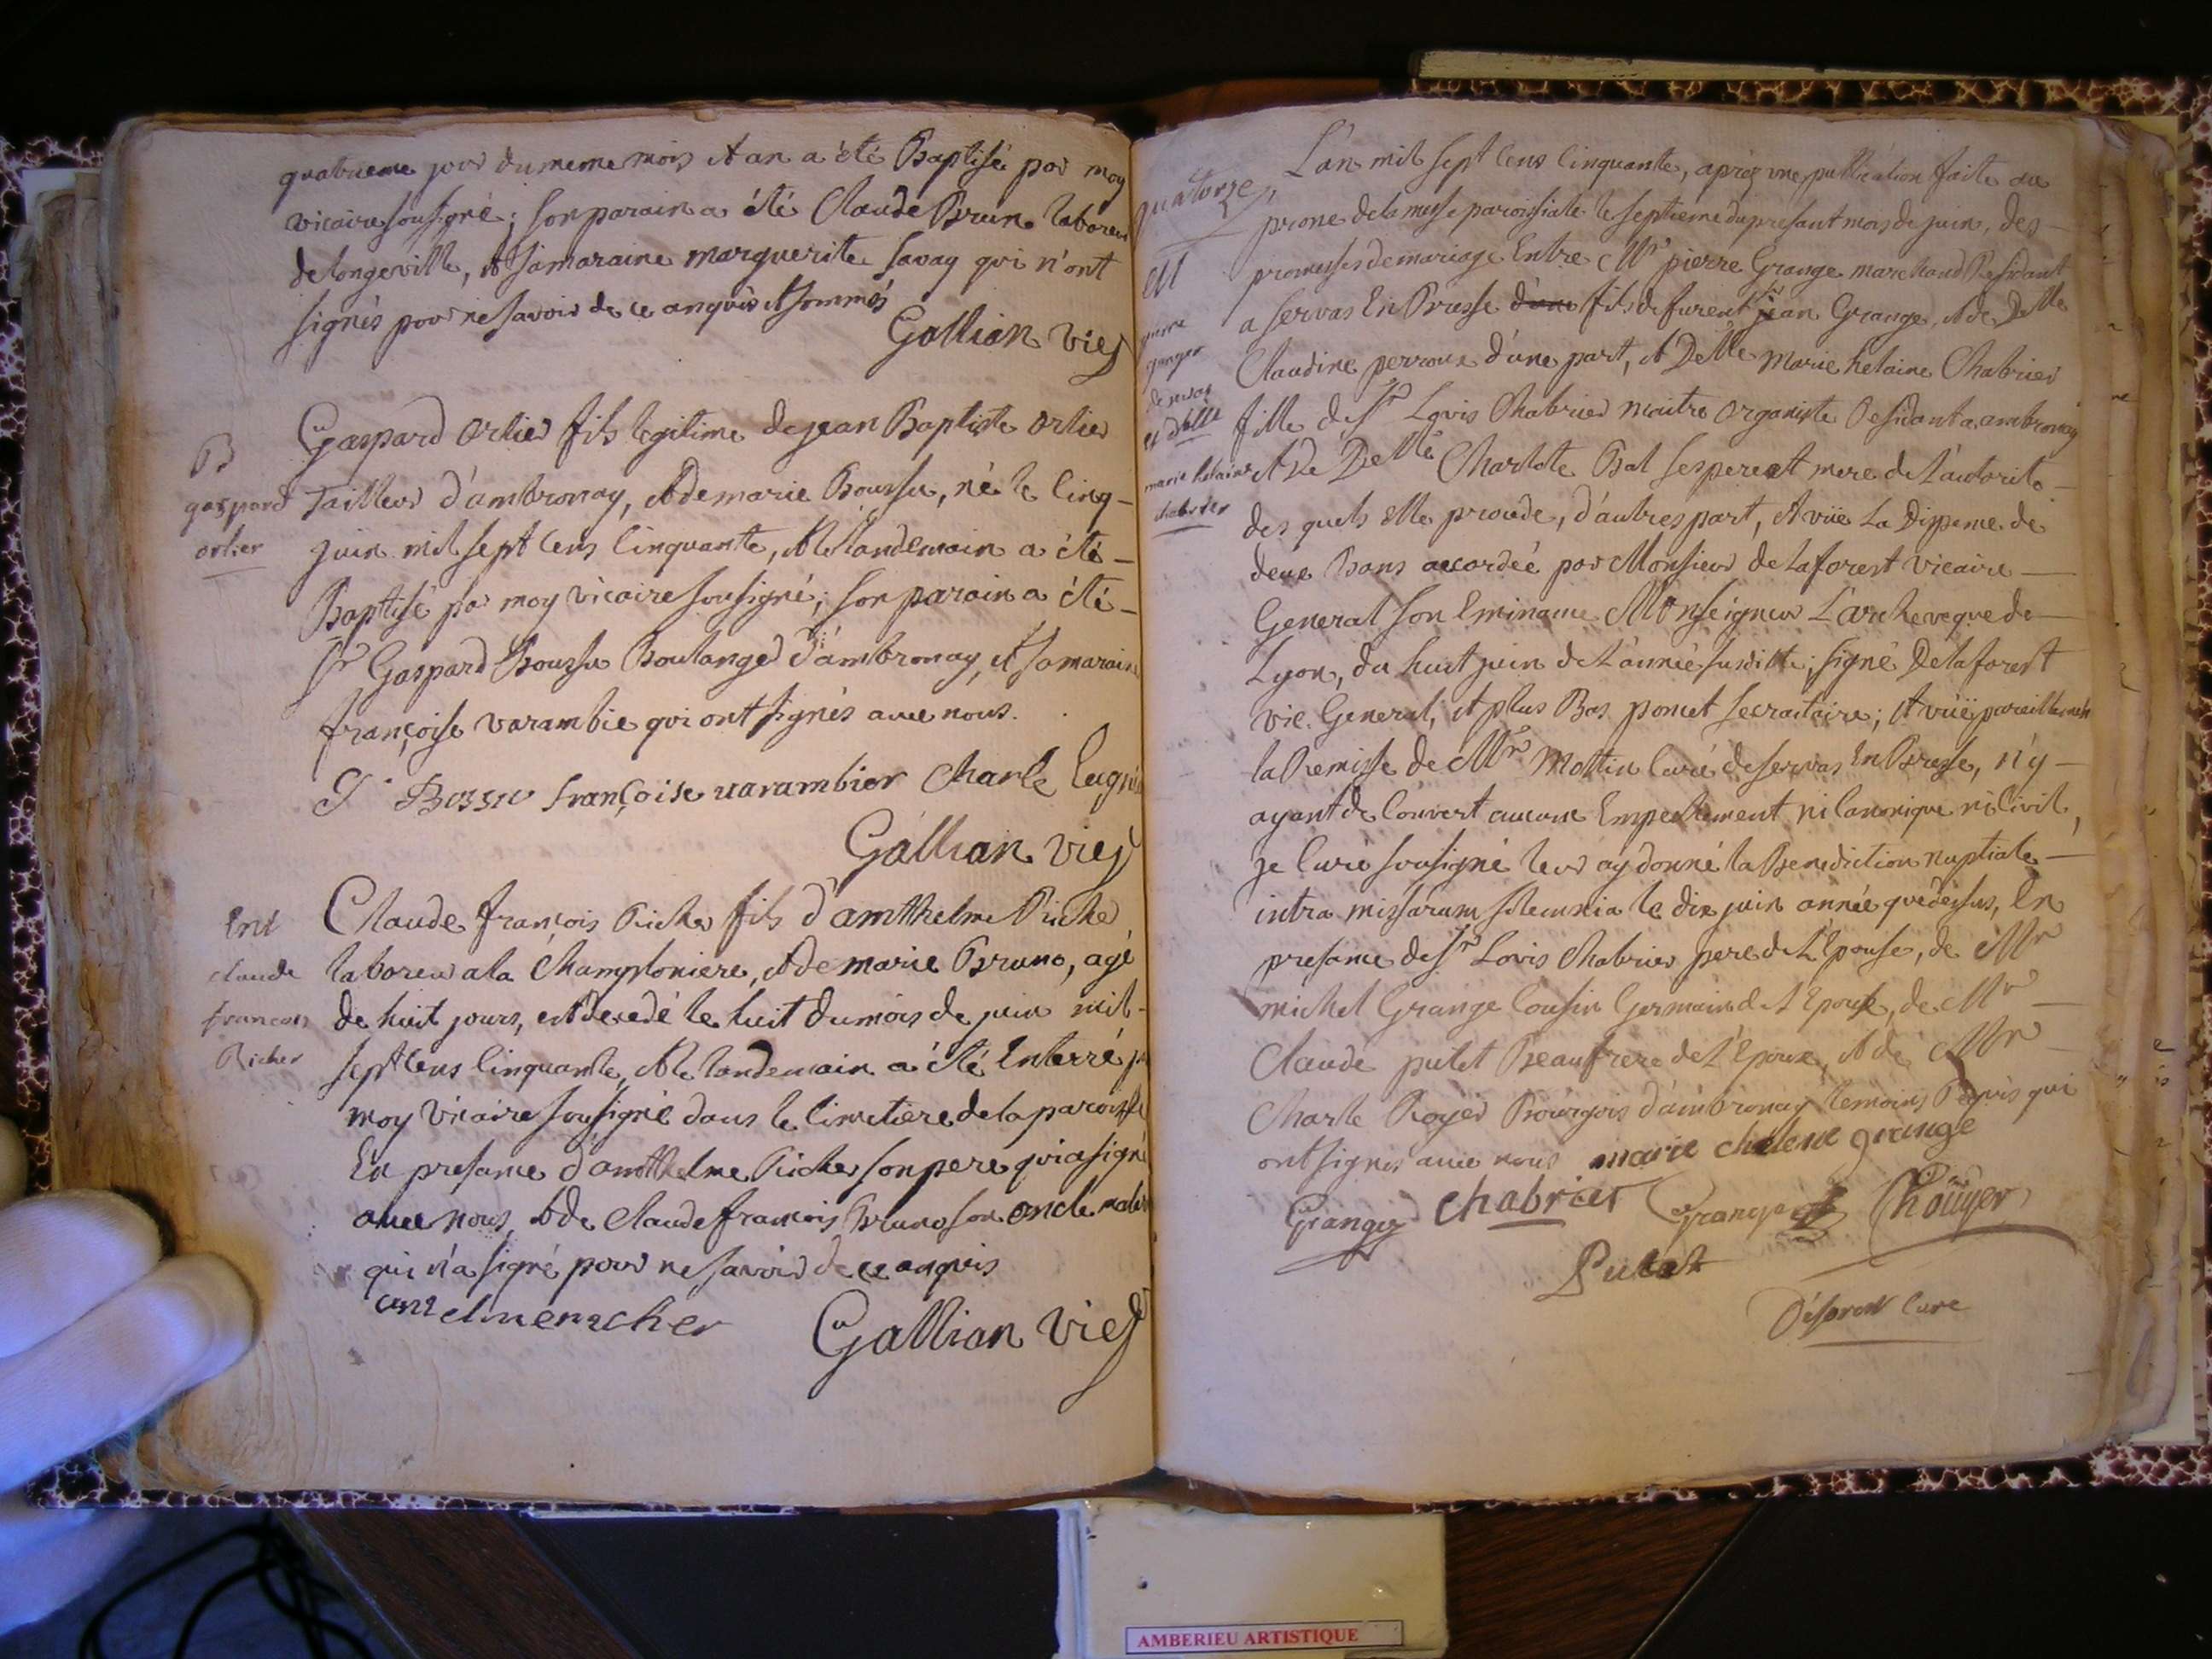 quatrieme jour du meme mois et an a été Baptisé par moy
vicaire sousigné; son parain a été Claude Brun laboreur
de longeville, et sa maraine marguerite Savay qui n'ont
signés pour ne savoir de ce anquis et sommés
Gallian vic
B
gaspard
ortier
Gaspard Ortier fils legitime de jean Baptiste Ortier
Tailleur d'ambronay, et de marie Boussu, né le cinq
juin mil sept cens cinquante, et le landemain a été
Baptisé par moy vicaire sousigné; son parain a été
Sr Gaspard Boussu Boulanger d'ambronay, et sa maraine
françoise varambie qui ont signés avec nous.
G Bossu françoise varambier Charle
Gallian vic
Ent
claude
francois
Richer
Claude françois Richer fils d'amthelme Richer
laboreur a la Champloniere, et de marie Bruno, agé
de huit jours, est decedé le huit du mois de juin mil
sept cens cinquante, et le landemain a été Enterré
moy vicaire sousigné dans le cimetiere de la paroisse
En presance d'amthelme Richer son pere qui a signé
avec nous, et de Claude françois Bruno son oncle
qui n'a signé pour ne savoir de ce anquis
antelme richer
Gallian vic
quatorze
M
pierre
granger
de servas
et dlle
marie helaine
chabrier
L'an mil sept cens cinquante, après une publication faite au
prone de la messe paroissiale le septieme du presant mois de juin, des
promesses de mariage Entre Mr pierre Grange marchand Residant
a servas En Bresse d'une fils de furent sr jean Grange, et de Delle
Claudine perroux d'une part, et Delle Marie helaine Chabrier
fille de Sr Lovis Chabrier maitre organiste Residant a ambronay
et De Delle Charlote Bal ses pere et mere de L'autorité
des quels Elle procède, d'autres part, et vüe La Dispense de
deux Bans accordée par Monsieur de Laforest vicaire
General son Eminance Monseigneur L'archeveque de
Lyon, du huit juin de L'année susditte; signé Delaforest
vic. General, et plus Bas pomet secraitaire; et vüe pareillement
la Remisse de Mr Mottin Curé de servas En Bresse, n'y
ayant de Couvert aucune Empechement ni Canonique ni Civil,
je Curé sousigné leur ay donné la Benediction nuptiale
intra missarum solemnia le dix juin année que dessus, En
presance de Sr Lovis Chabrier pere de L'Epouse, de Mr
michel Grange Cousin Germain de L'Epoux, de Mr
Claude putet Beaufrere de L'Epoux, et de Mr
Charle Royer Bourgois d'ambronay temoins Requis qui
ont signés avec nous marie chelene grange
Grange chabrier Grange
Putet
Curé
AMBERIEU ARTISTIQUE